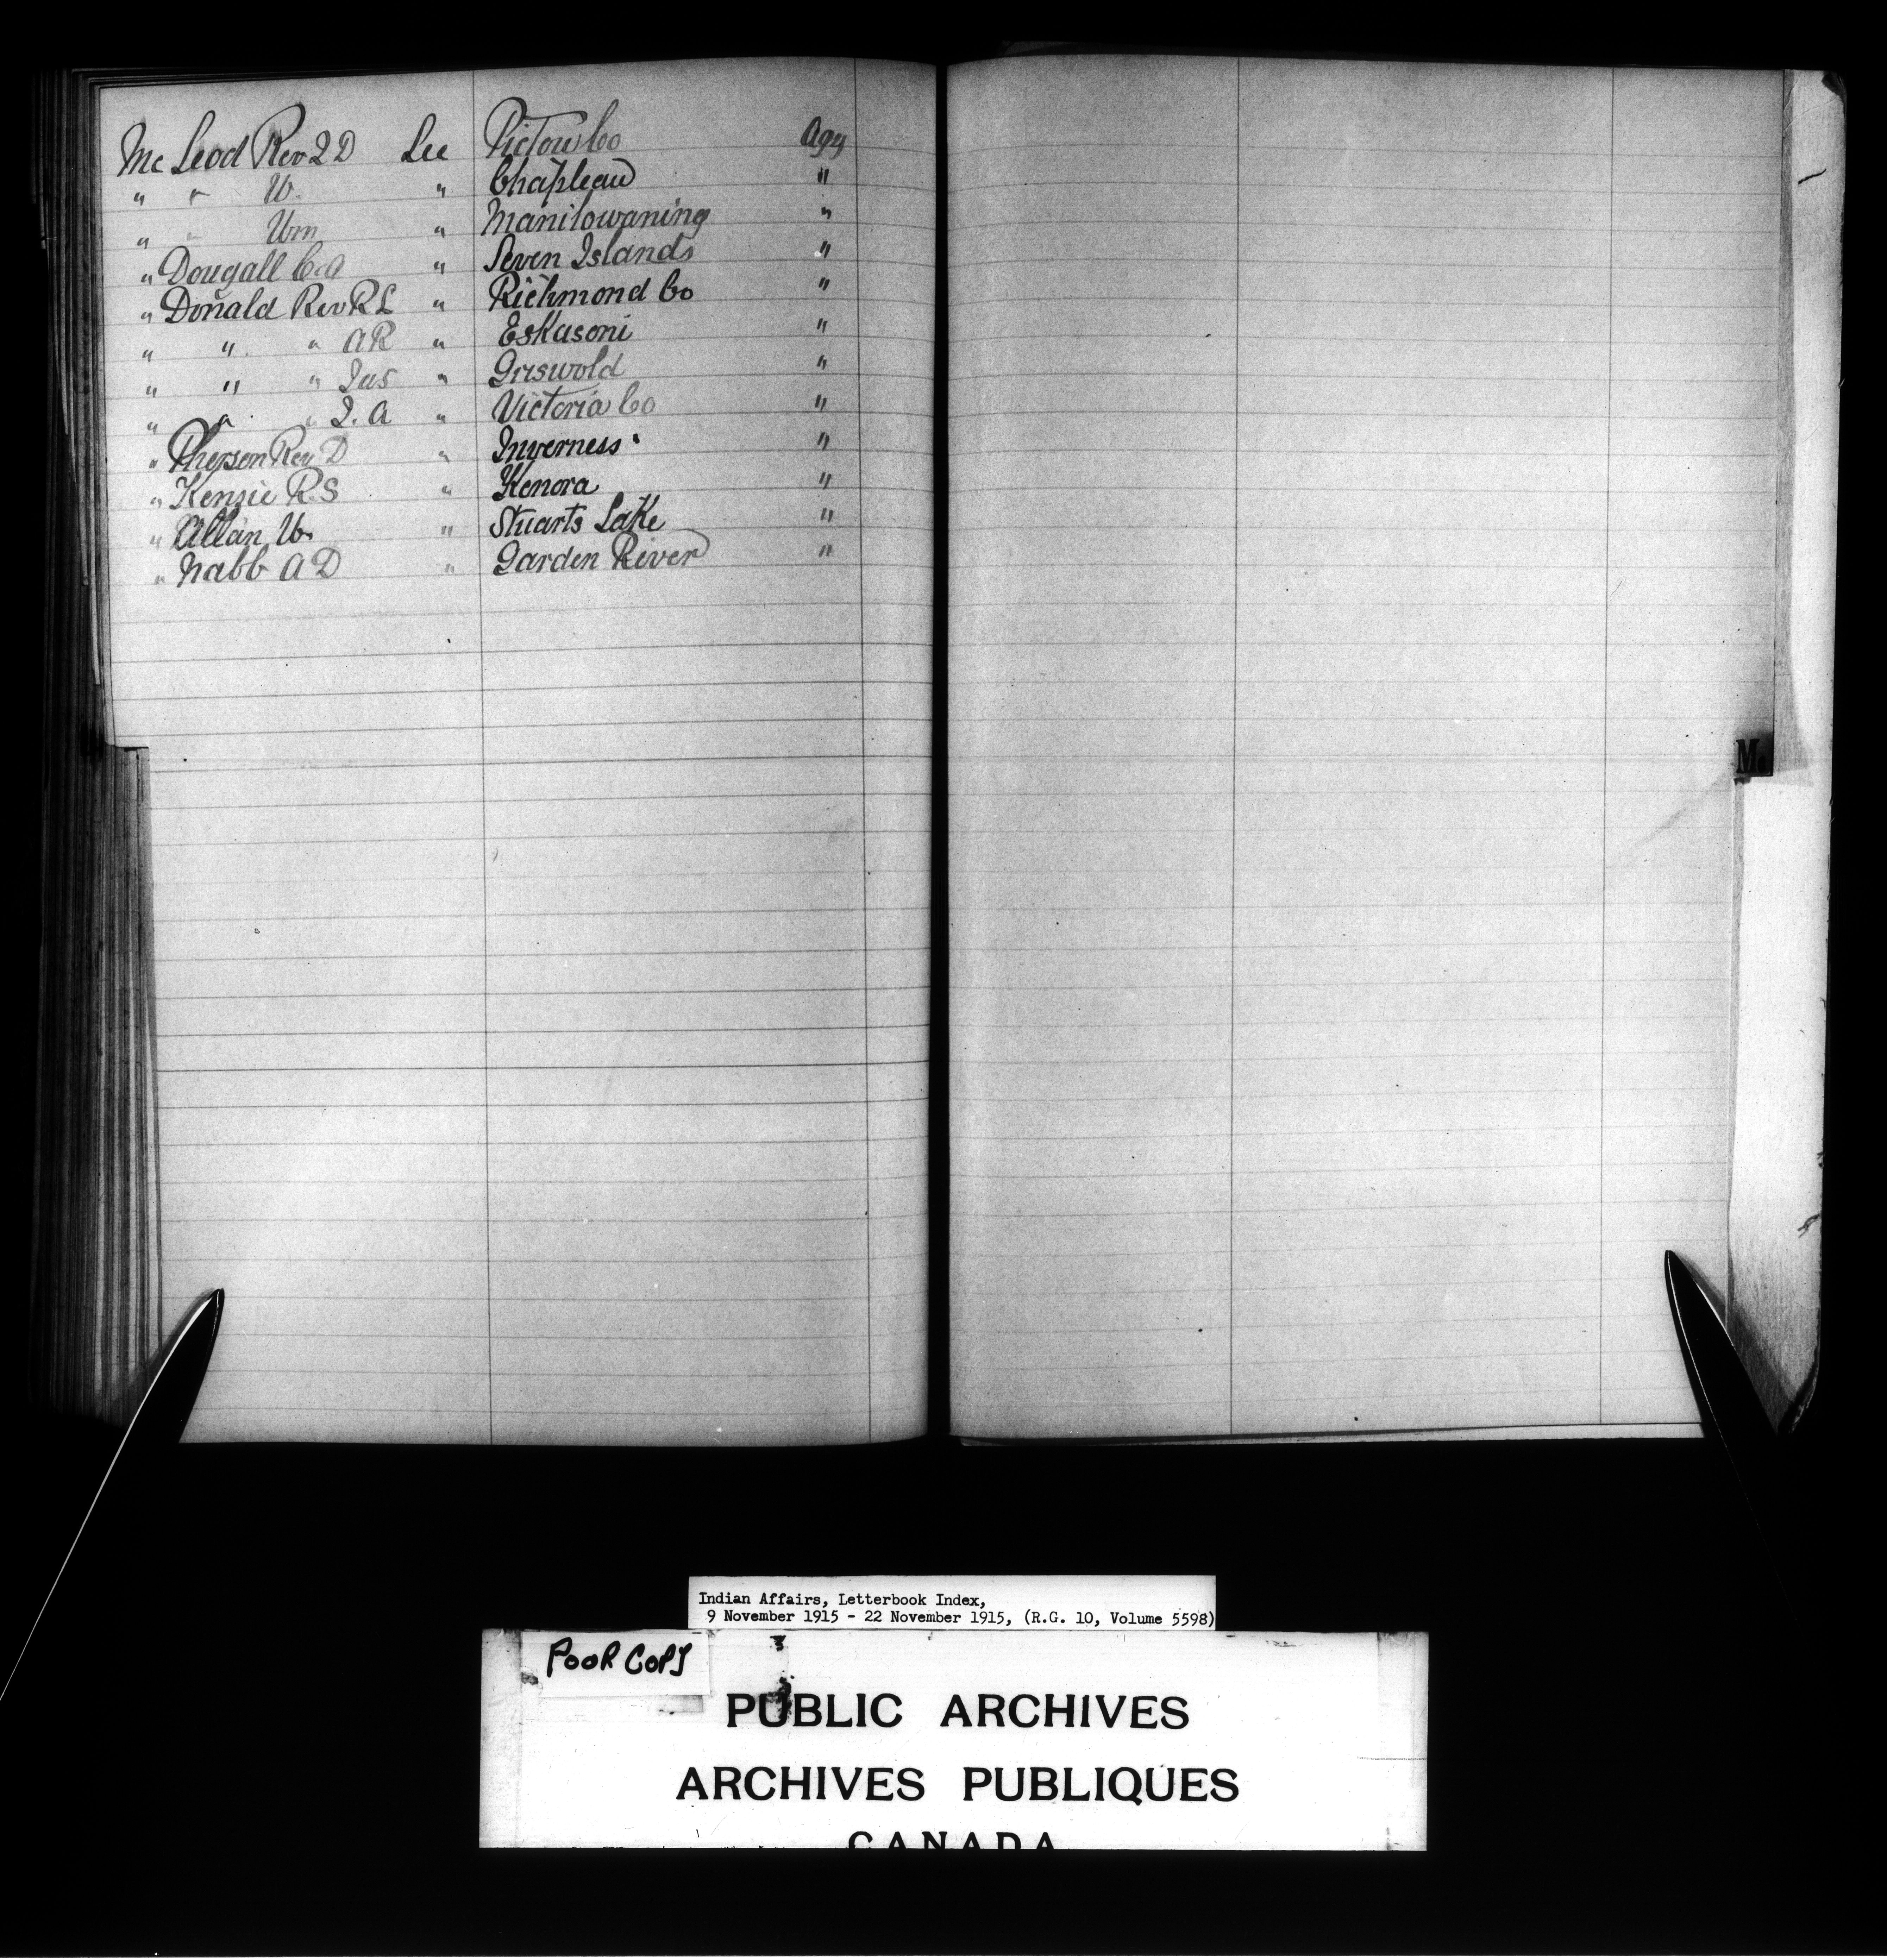 Mc Leod Rev J D See Pictou Co Agy
" " W. " Chapleau "
" " Wm " Manitowaning "
" Dougall C A " Seven Islands "
" Donald Rev R L " Richmond Co "
" " " A R " Eskasoni "
" " " Jas " Griswold "
" " " J. A " Victoria Co "
" Pherson Rev D " Inverness "
" Kenzie R. S " Kenora "
" Allan W. " Stuarts Lake "
" Nabb A D " Garden River "
Mc
Indian Affairs, Letterbook Index,
9 November 1915 - 22 November 1915, (R.G. 10, Volume 5598)
POOR COPY
PUBLIC ARCHIVES
ARCHIVES PUBLIQUES
CANADA